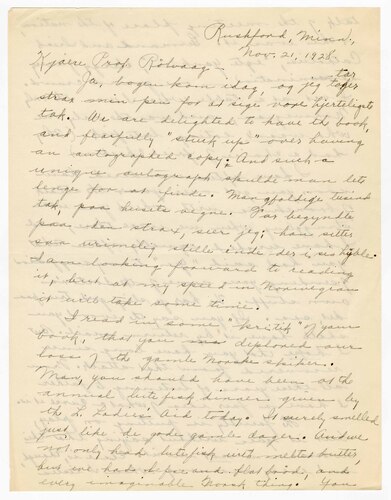 Rushford, Minn.,
Nov. 21, 1928.
Kjære Prof. Rölvaag—
Ja, bogen kom idag, og jeg tar
strax min pen for at sige vore hjerteligste
tak. We are delighted to have the book,
and fearfully "stuck up" over having
an autographed copy. And such a
unique autograph skulde man lete
lenge for at finde. Mangfoldige tusind
tak, paa husets vegne. Far begyndte
paa den strax, sier jeg; han sitter
saa urimelig stille inde der i
I am looking forward to reading
it, but at my speed in Norwegian
it will take some time.
I read in some "kritik" of your
book, that you deplored our
loss of the gamle Norske skikker.
Man, you should have been at the
annual lutefisk dinner given by
the L. Ladies' Aid today. It surely smelled
just like de gode gamle dager. And we
not only had lutefisk with melted butter,
but we had lefse and flatbröd, and
every imaginable Norsk thing. You